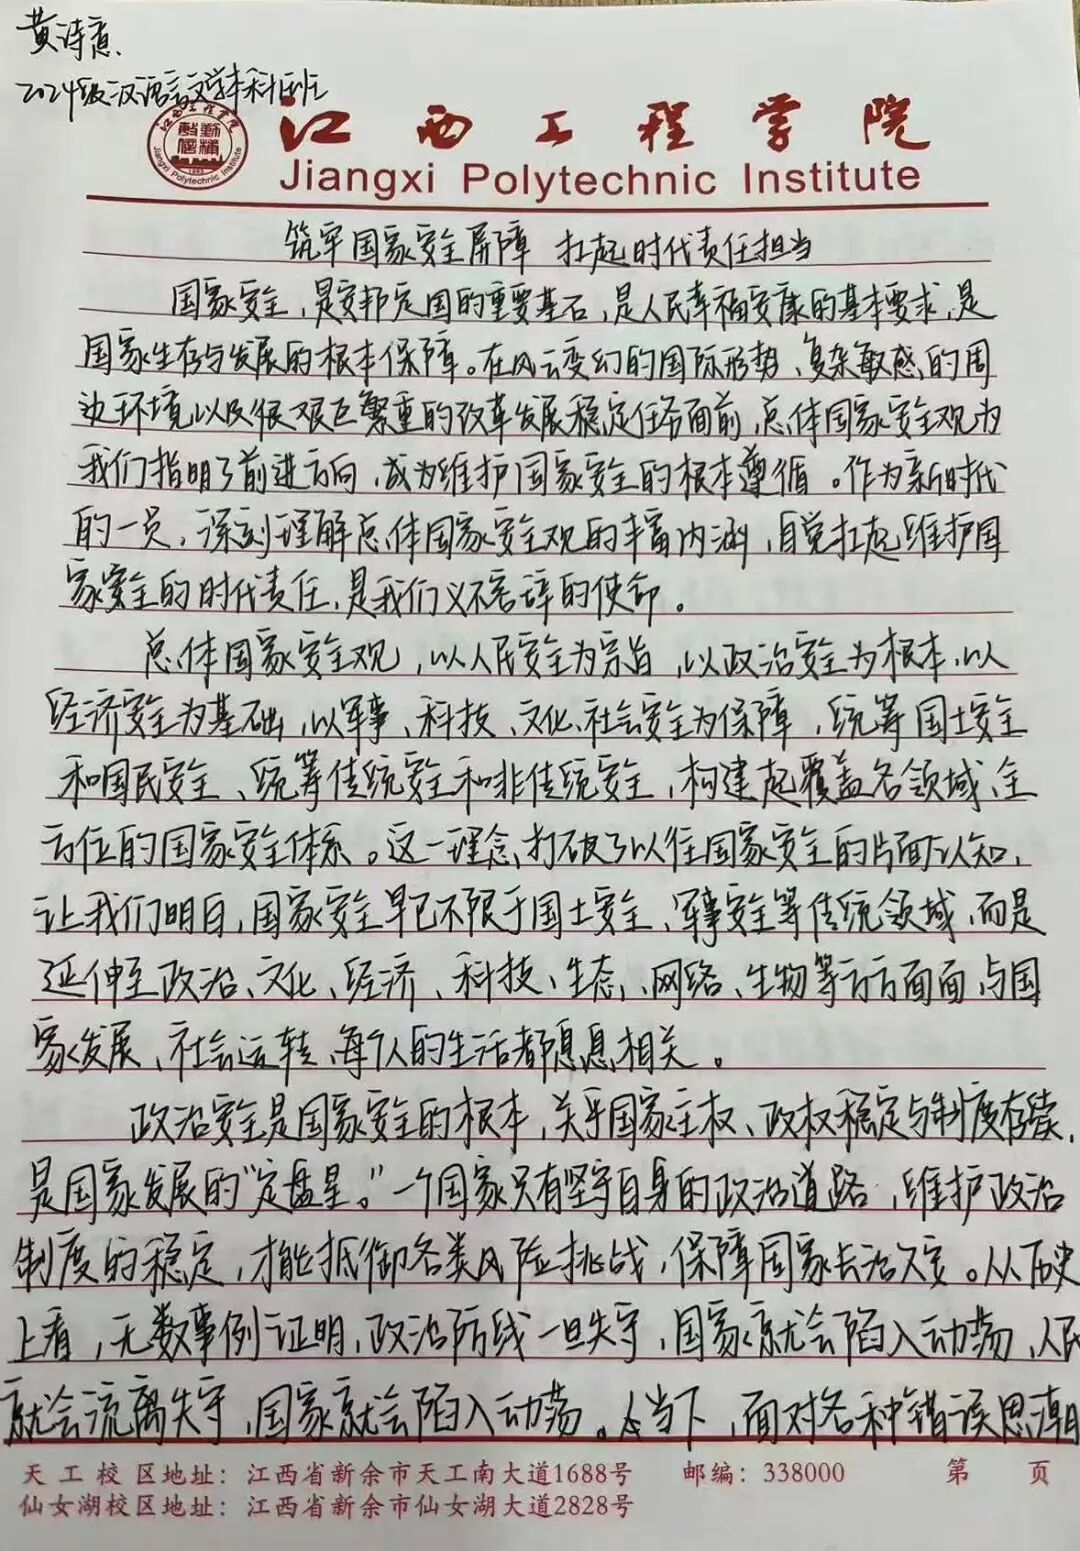 黄诗意.
2024级汉语言文学本科1班
江西工程学院
Jiangxi Polytechnic Institute
筑牢国家安全屏障 扛起时代责任担当
国家安全，是安邦定国的重要基石，是人民幸福安康的基本要求，是
国家生存与发展的根本保障。在风云变幻的国际形势、复杂敏感的周
边环境以及很艰巨繁重的改革发展稳定任务面前，总体国家安全观为
我们指明了前进方向，成为维护国家安全的根本遵循。作为新时代
的一员，深刻理解总体国家安全观的丰富内涵，自觉扛起维护国
家安全的时代责任，是我们义不容辞的使命。
总体国家安全观，以人民安全为宗旨，以政治安全为根本，以
经济安全为基础，以军事、科技、文化、社会安全为保障，统筹国土安全
和国民安全、统筹传统安全和非传统安全，构建起覆盖各领域、全
方位的国家安全体系。这一理念，打破了以往国家安全的片面认知，
让我们明白，国家安全早已不限于国土安全、军事安全等传统领域，而是
延伸至政治、文化、经济、科技、生态、网络、生物等方方面面，与国
家发展、社会运转、每个人的生活都息息相关。
政治安全是国家安全的根本，关乎国家主权、政权稳定与制度存续，
是国家发展的“定盘星。”一个国家只有坚守自身的政治道路，维护政治
制度的稳定，才能抵御各类风险挑战，保障国家长治久安。从历史
上看，无数事例证明，政治防线一旦失守，国家就会陷入动荡，人民
就会流离失守，国家就会陷入动荡。当下，面对各种错误思潮
天工校区地址：江西省新余市天工南大道1688号 邮编：338000 第 页
仙女湖校区地址：江西省新余市仙女湖大道2828号